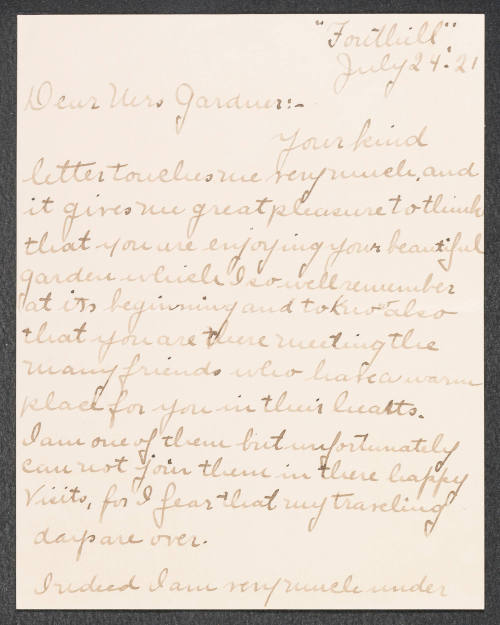 "Fonthill"
July 24. 21
Dear Mrs Gardner:-
Your kind
letter touches me very much, and
it gives me great pleasure to think
that you are enjoying your beautiful
garden which I so well remember
at its beginning and to know also
that you are there meeting the
many friends who have a warm
place for you in their hearts.
I am one of them but unfortunately
can not join them in there happy
visits, for I fear that my traveling
days are over.
Indeed I am very much under